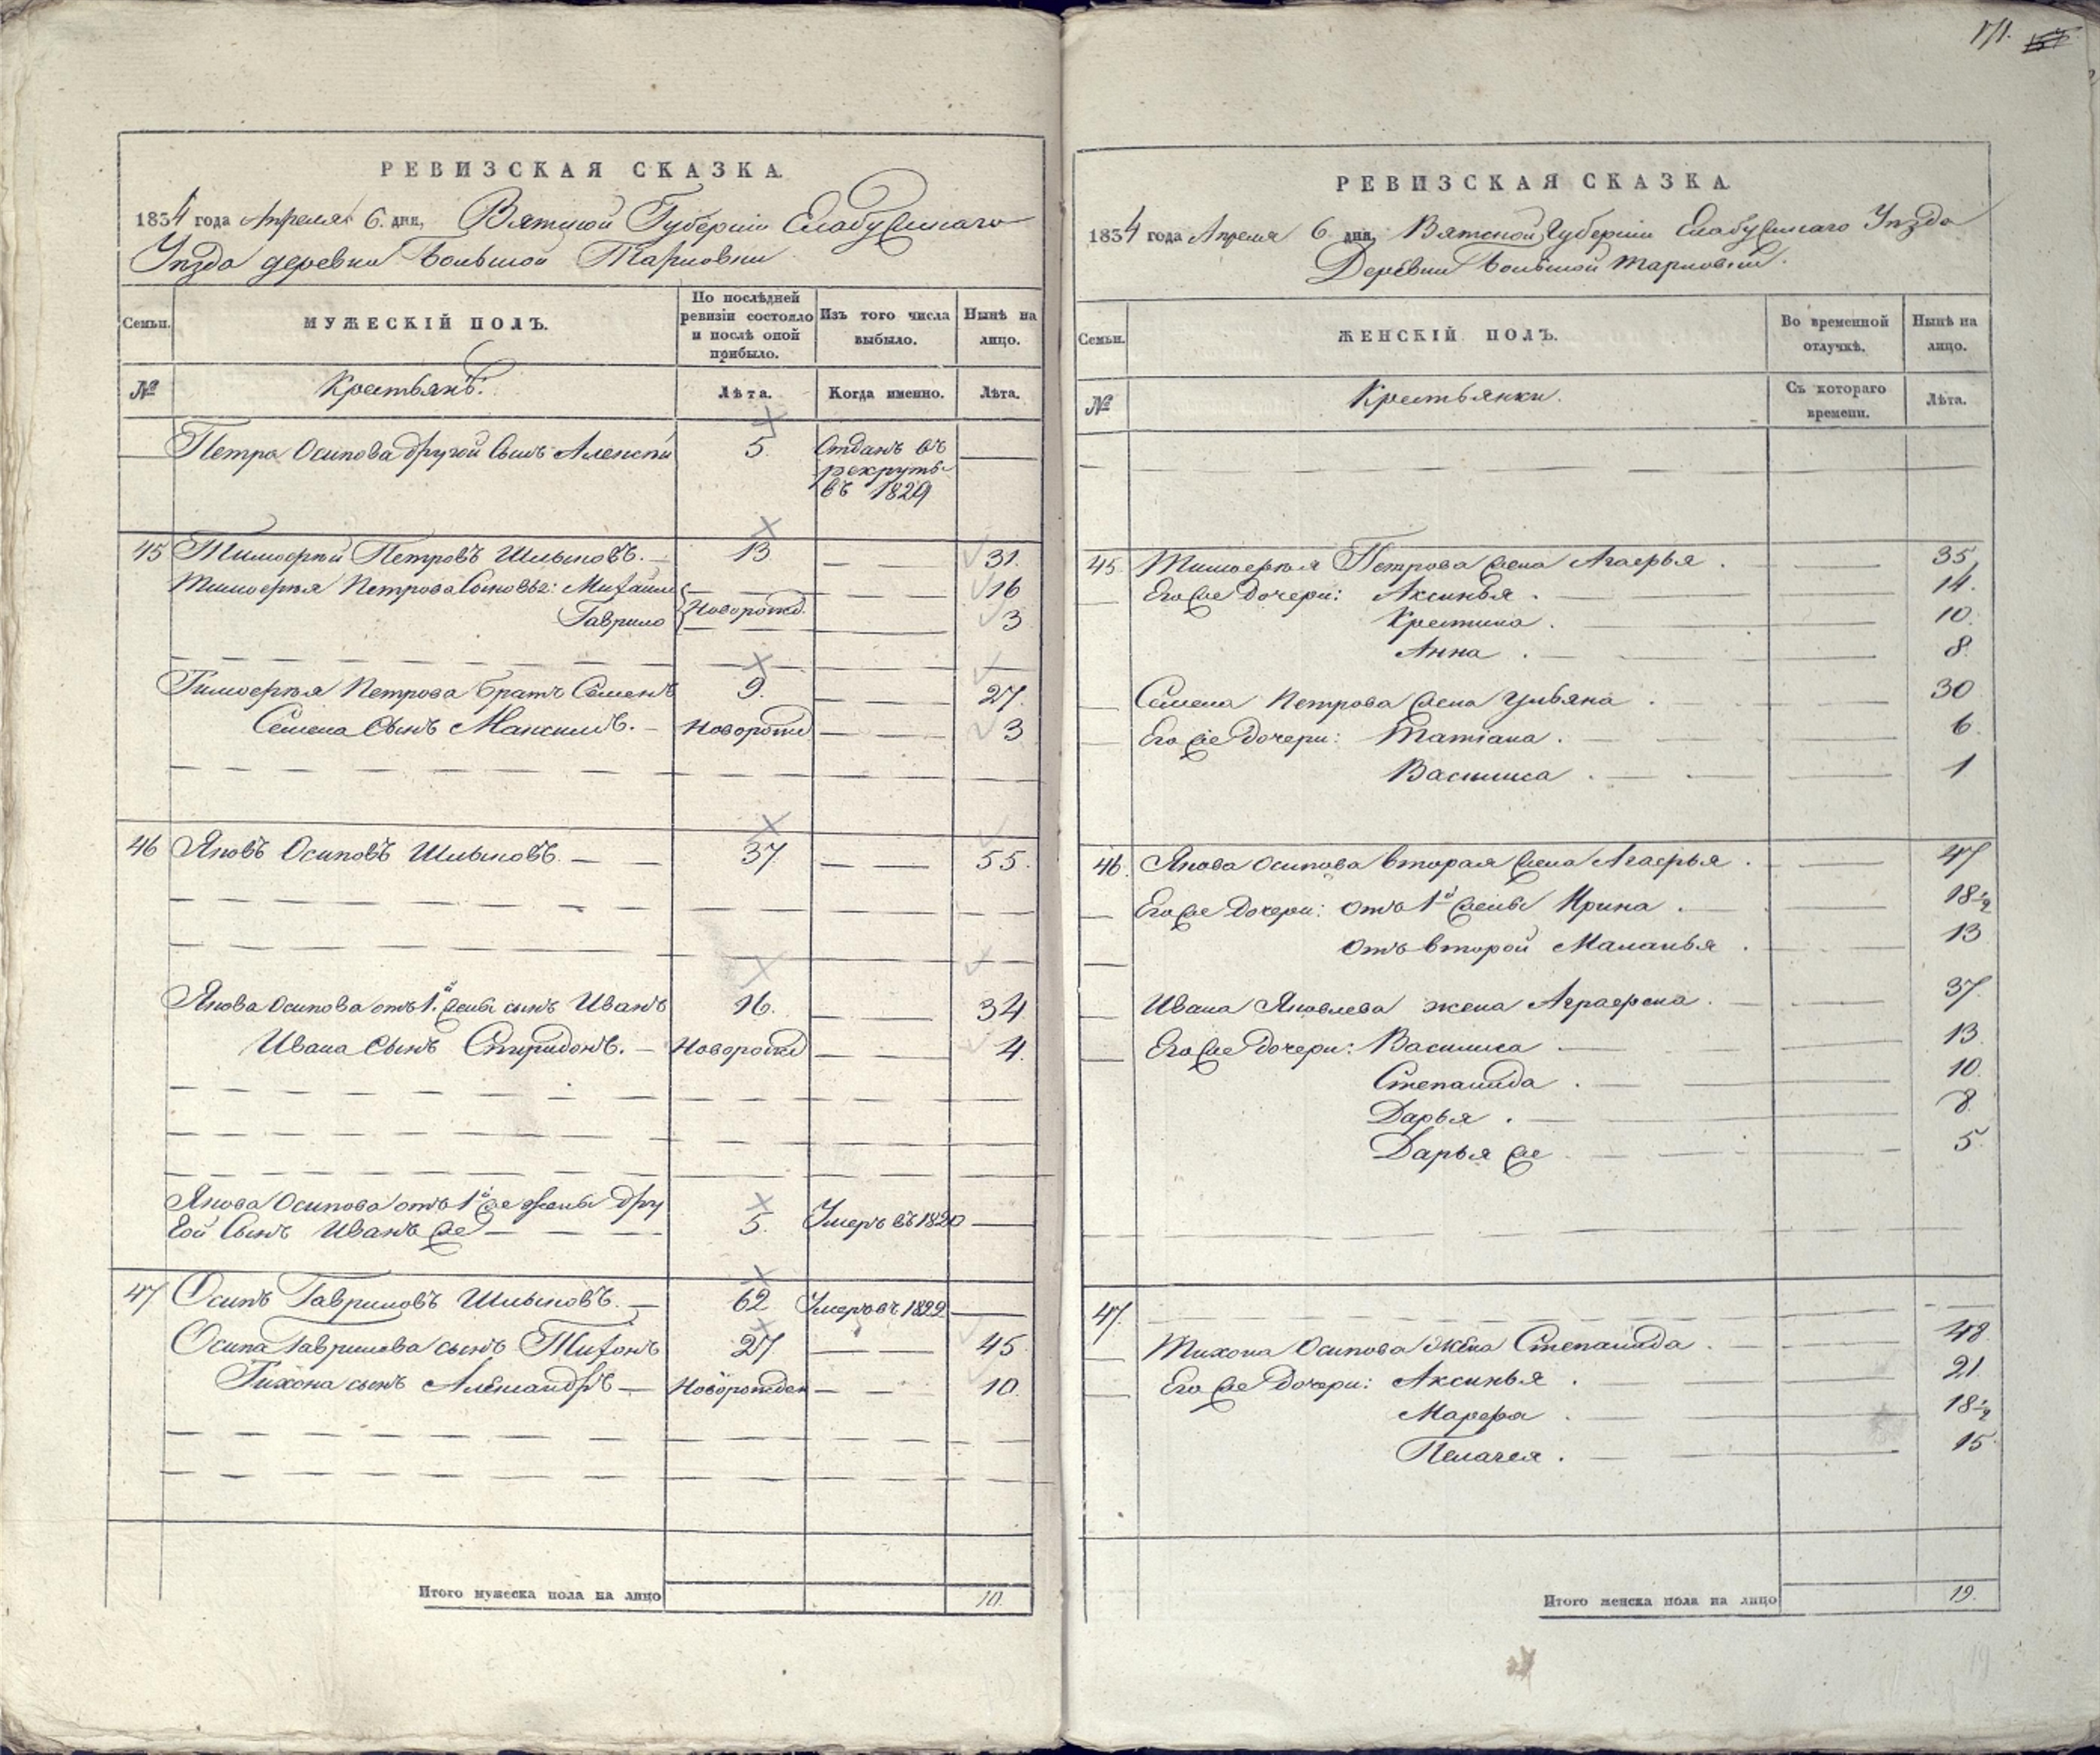 171.
РЕВИЗСКАЯ СКАЗКА
1834 года Апреля 6. дня, Вятской Губернiи Елабужскаго
Уѣзда деревни Большой
Семьи.
МУЖЕСКІЙ ПОЛЪ.
По послѣдней ревизіи состояло и послѣ оной прибыло.
Изъ того числа выбыло.
Нынѣ на лицо.
№
Крестьянъ:
Лѣта.
Когда именно.
Лѣта.
Петра Осипова другой Сынъ Алексѣй 5 Отданъ въ
рекруты
въ 1829
45 Тимофѣй Петровъ 13 31.
Тимофѣя Петрова Сыновья: Михайло 16
Гаврило Новорожд. 3
Тимофѣя Петрова братъ Семенъ 9. 27.
Семена Сынъ Максимъ. Новорожд 3
46 Яковъ Осиповъ 37 55.
Якова Осипова отъ 1й жены сынъ Иванъ 16. 34
Ивана Сынъ Спиридонъ. Новорожд 4.
Якова Осипова отъ 1й же жены дру
гой Сынъ Иванъ же 5. Умеръ въ 1820
47 Осипъ Гавриловъ 62 Умеръ въ 1822
Осипа Гаврилова сынъ Тихонъ 27 45
Тихона сынъ Александръ Новорожден 10.
Итого мужеска пола на лицо 10.
РЕВИЗСКАЯ СКАЗКА
1834 года Апреля 6 дня, Вятской Губернiи Елабужскаго Уѣзда
Деревни Большой
Семьи.
ЖЕНСКІЙ ПОЛЪ.
Во временной отлучкѣ.
Нынѣ на лицо.
№
Крестьянки.
Съ котораго времени.
Лѣта.
45. Тимофѣя Петрова жена Агафья. 35
Его же дочери: Аксинья. 14.
Крестина. 10.
Анна. 8.
Семена Петрова жена Ульяна. 30
Его же дочери: Татiана. 6.
Василиса. 1
46. Якова Осипова вторая жена Агафья. 47
Его же дочери: отъ 1й жены Ирина. 18½
отъ второй Маланья. 13
Ивана Яковлева жена Аграфена. 37.
Его же дочери: Василиса 13.
Степанида. 10.
Дарья. 8.
Дарья же 5.
47.
Тихона Осипова жена Степанида. 48.
Его же дочери: Аксинья. 21.
Марфа. 18½
Пелагея. 15.
Итого женска пола на лицо 19.